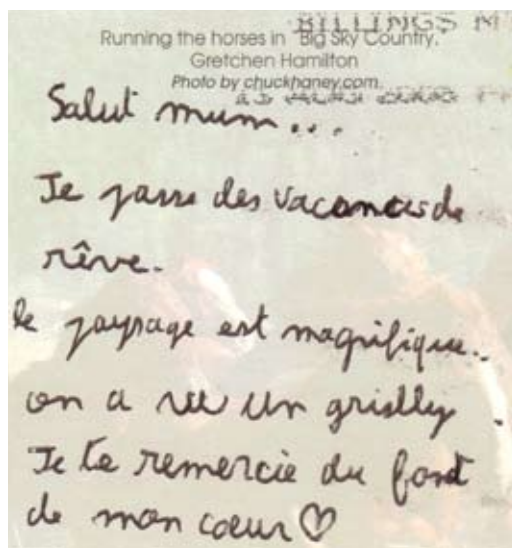 BILLINGS M
Running the horses in "Big Sky Country."
Gretchen Hamilton
Photo by chuckhaney.com.
Salut mum...
Je passe des vacances de
rêve.
le paysage est magnifique..
on a vu un grislly.
Je te remercie du fond
de mon coeur ♡